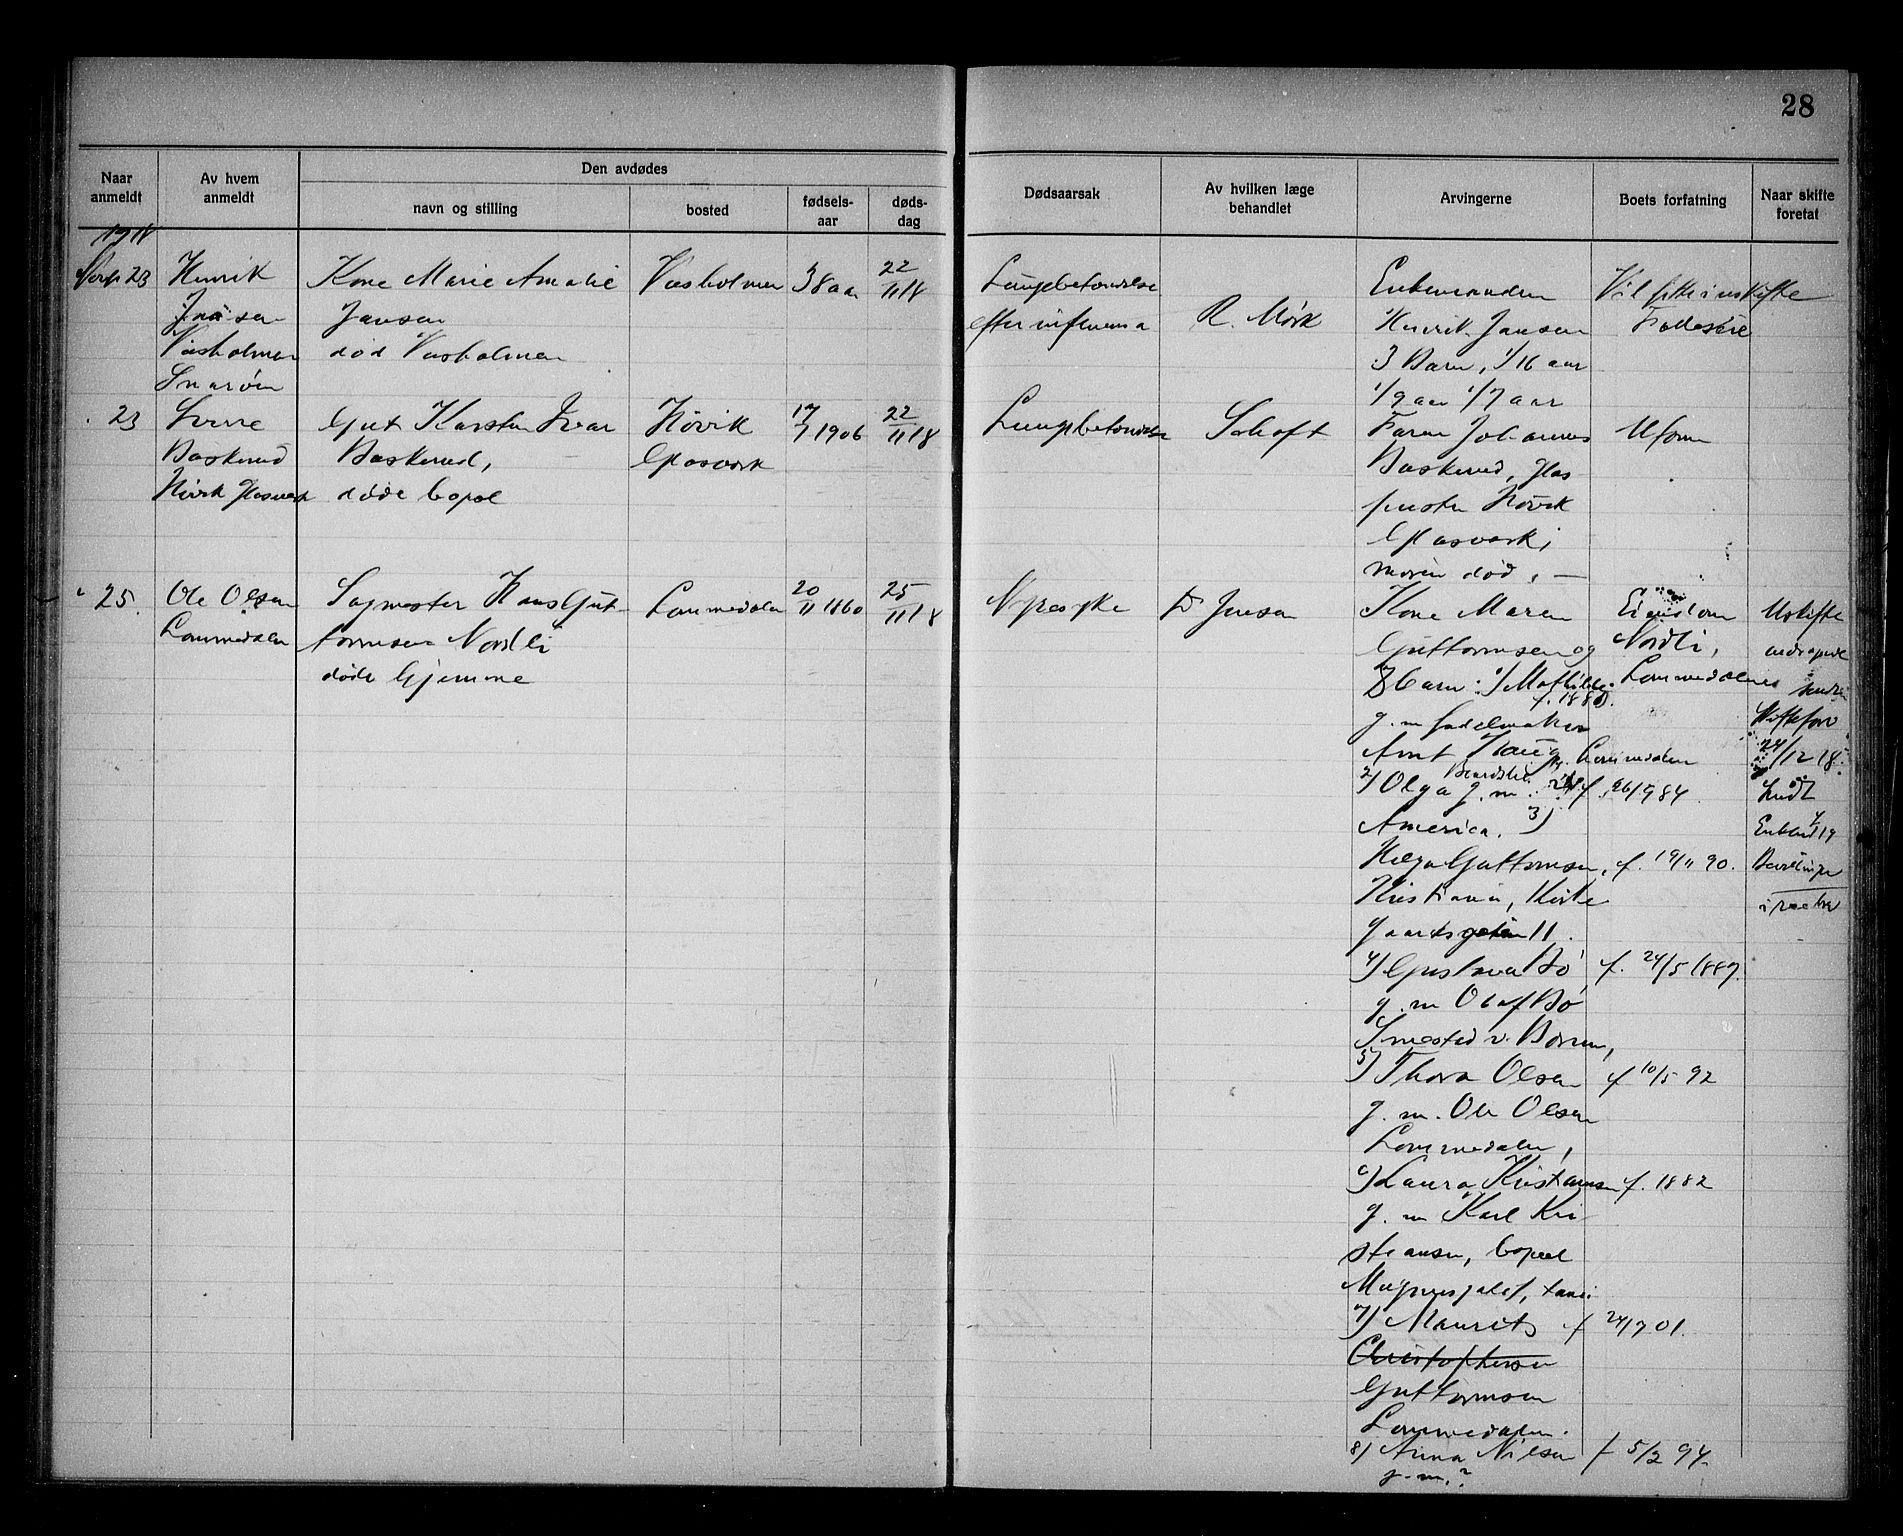 28
Naar anmeldt
Av hvem anmeldt
Den avdødes
navn og stilling
bosted
fødsels-aar
døds-dag
Dødsaarsak
Av hvilken læge behandlet
Arvingerne
Boets forfatning
Naar skifte foretat
1918
23
Henrik
Jansen
Snarøen
Kone Marie Amalie
Jansen
død
38 aar
22/11 18
Lungebetændelse
efter influensa
R. Mörk
Enkemanden
Henrik Jansen
3 Barn, 1/16 aar
1/9 aar 1/7 aar
Vil sitte i uskifte
23
Sverre
Baskerud
Hövik Glasverk
Gut Karsten Ivar
Baskerud,
døde bopæl
Hövik
Glasverk
17/7 1906
22/11 18
Lungebetændelse
Schøft
Faren Johannes
Baskerud, Glas
puster Hövik
Glasverk,
moren död, —
Ufor
25.
Ole Olsen
Lommedalen
Sagmester Hans Gut-
tormsen Nordli
døde hjemme
Lommedalen
20/11 1860
25/11 18
Nyresyke
Dr Jensen
Kone Maren
Guttormsen og
8 barn: 1) Mathilde
f. 1880.
g. m. sadelmaker
Arnt Haug, Lommedalen
2) Olga g. m. f. 26/9 84.
America. 3)
Helga Guttormsen, f. 19/11 90.
Kristiania, Kirke
gaardsgaten 11.
4) Gustava Bö f. 24/5 1887.
g. m Olaf Bö
Smestad v. Bærum,
5) Thora Olsen f 10/5 92
g. m. Ole Olsen
Lommedalen,
6) Laura Kristiansen f. 1882
g. m Karl Kri-
stiansen, bopæl
7) Maurits f 24/7 01.
Christophersen
Guttormsen
Lommedalen.
8) Anna Nilsen f 5/2 94.
g. m. ?
Eiendom
Nordli,
Lommedalen
Uskifte
24/12 18.